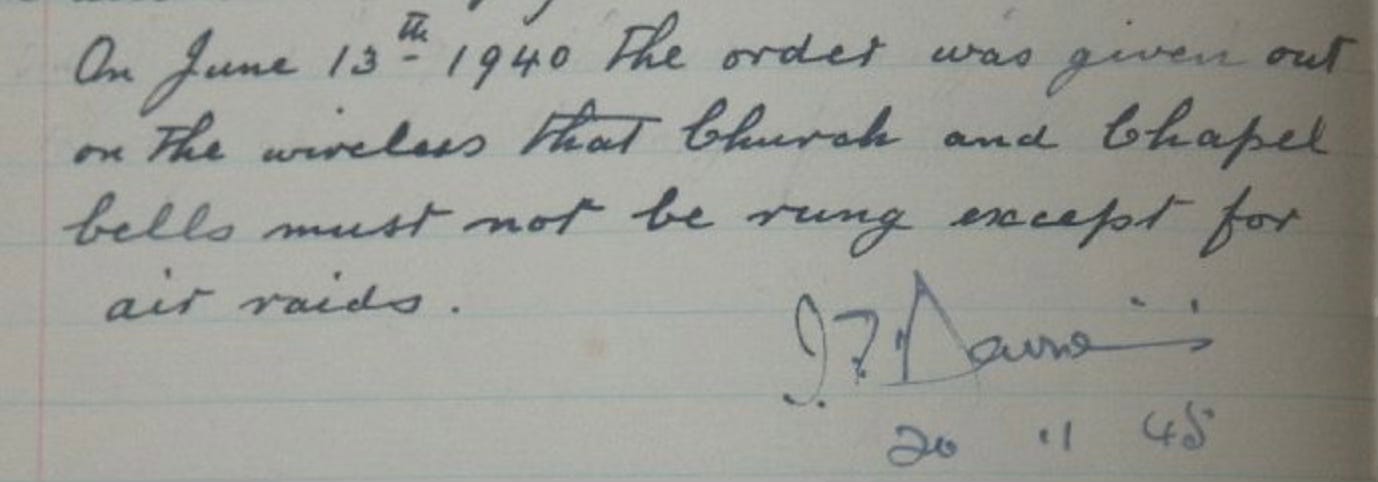 On June 13th 1940 the order was given out
on the wireless that Church and Chapel
bells must not be rung except for
air raids.
20 11 45